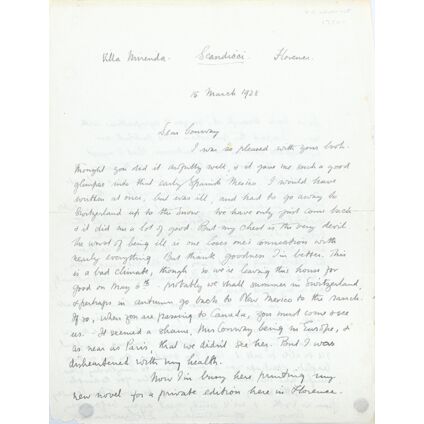 Villa Mirenda. Scandicci. Florence.
15 March 1928
Dear Conway
I was so pleased with your book.
Thought you did it awfully well, & it gave me such a good
glimpse into that early Spanish Mexico. I would have
written at once, but was ill, and had to go away to
Switzerland up to the snow. We have only just come back –
& it did me a lot of good. But my chest is the very devil
the worst of being ill is one loses one's connection with
nearly everything. But thank goodness I'm better. This
is a bad climate, though, so we're leaving this house for
good on May 6th – probably we shall summer in Switzerland,
& perhaps in autumn go back to New Mexico to the ranch.
If so, when you are passing to Canada, you must come & see
us. – It seemed a shame, Mrs Conway being in Europe, &
as near as Paris, that we didn't see her. But I was
disheartened with my health.
Now I'm busy here printing my
new novel for a private edition here in Florence.